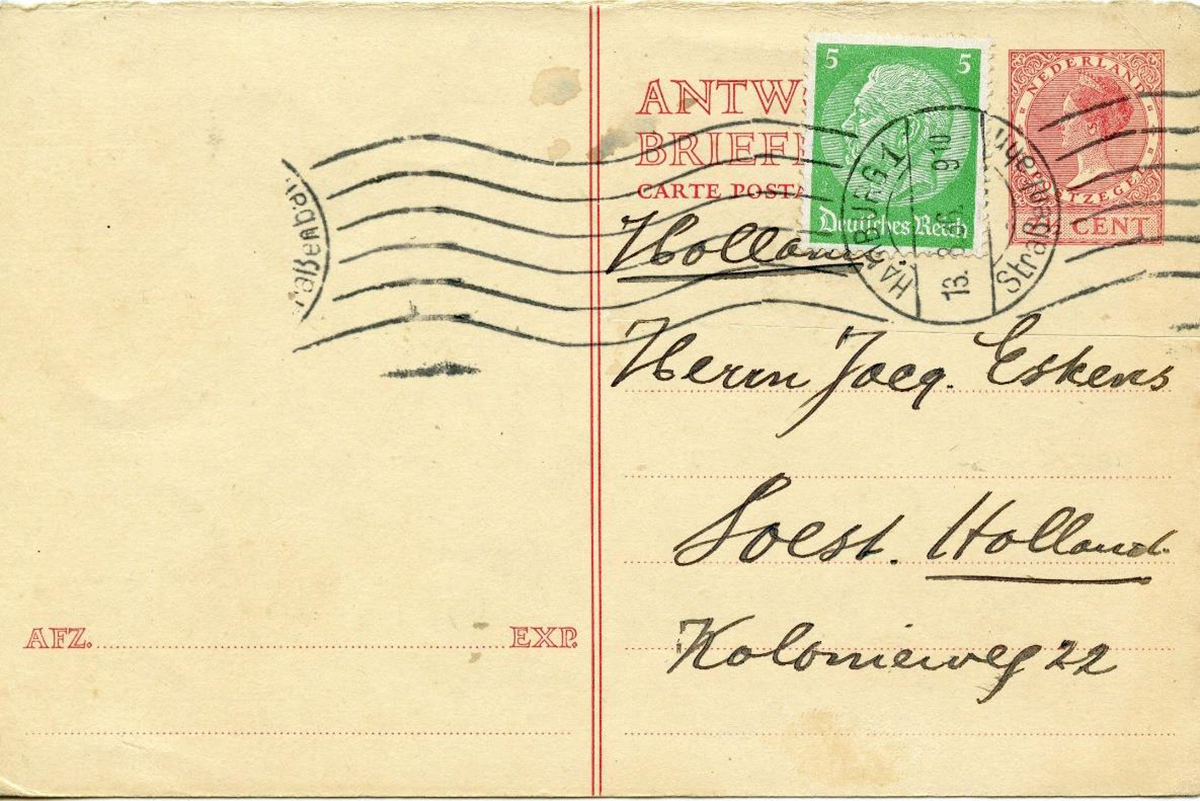 ANTW
BRIEF
CARTE POSTA
5 5
Deutsches Reich
NEDERLAND
POSTZEGEL
CENT
HAMBURG 1
13.
9-10
Straß
aßenbah
Holland
Herrn Jacq. Eskens
Soest. Holland.
Kolonieweg 22
AFZ. EXP.